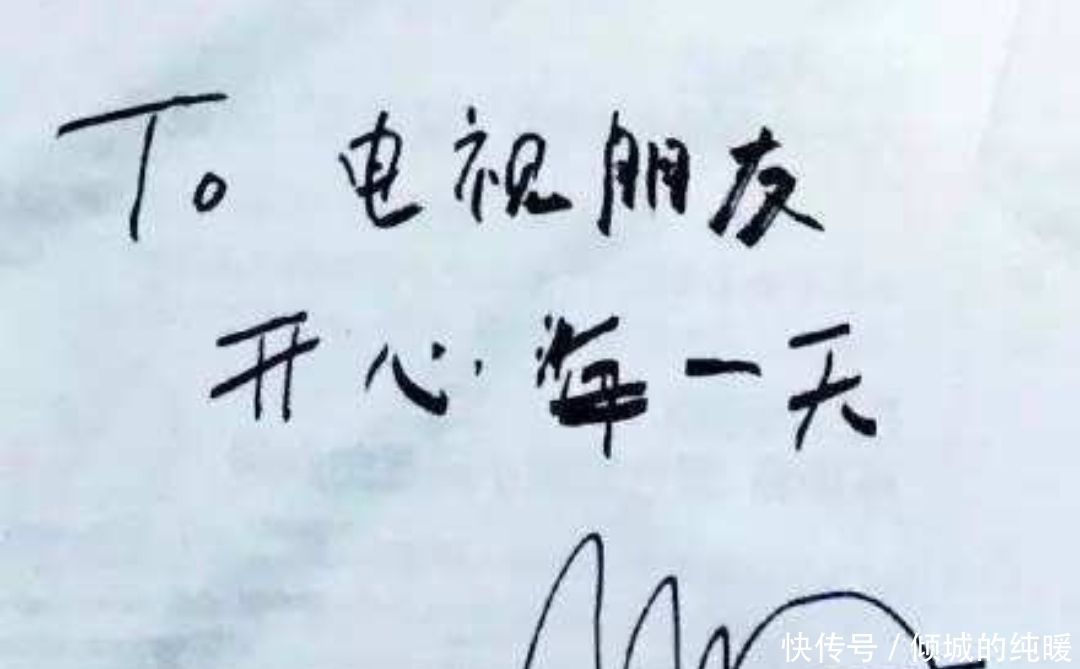 To 电视朋友
开心.海一天
快传号 / 倾城的纯暖